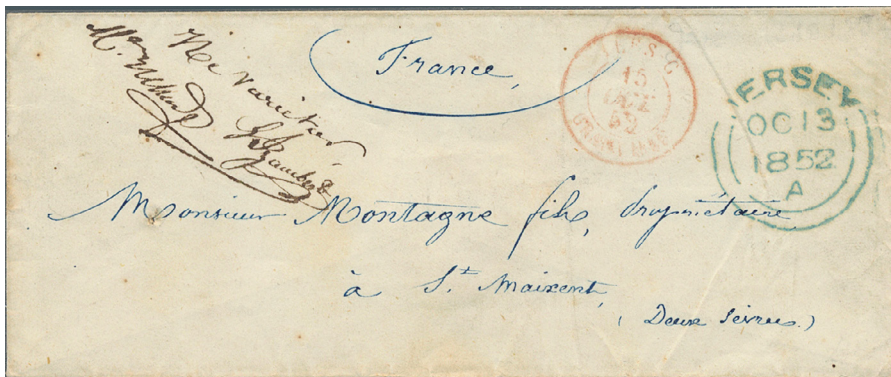 Ne varietur
France,
ILES-C
15
OCT
52
JERSEY
OC 13
1852
A
Monsieur Montagne fils, propriétaire
à St. Maixent,
(Deux Sèvres)